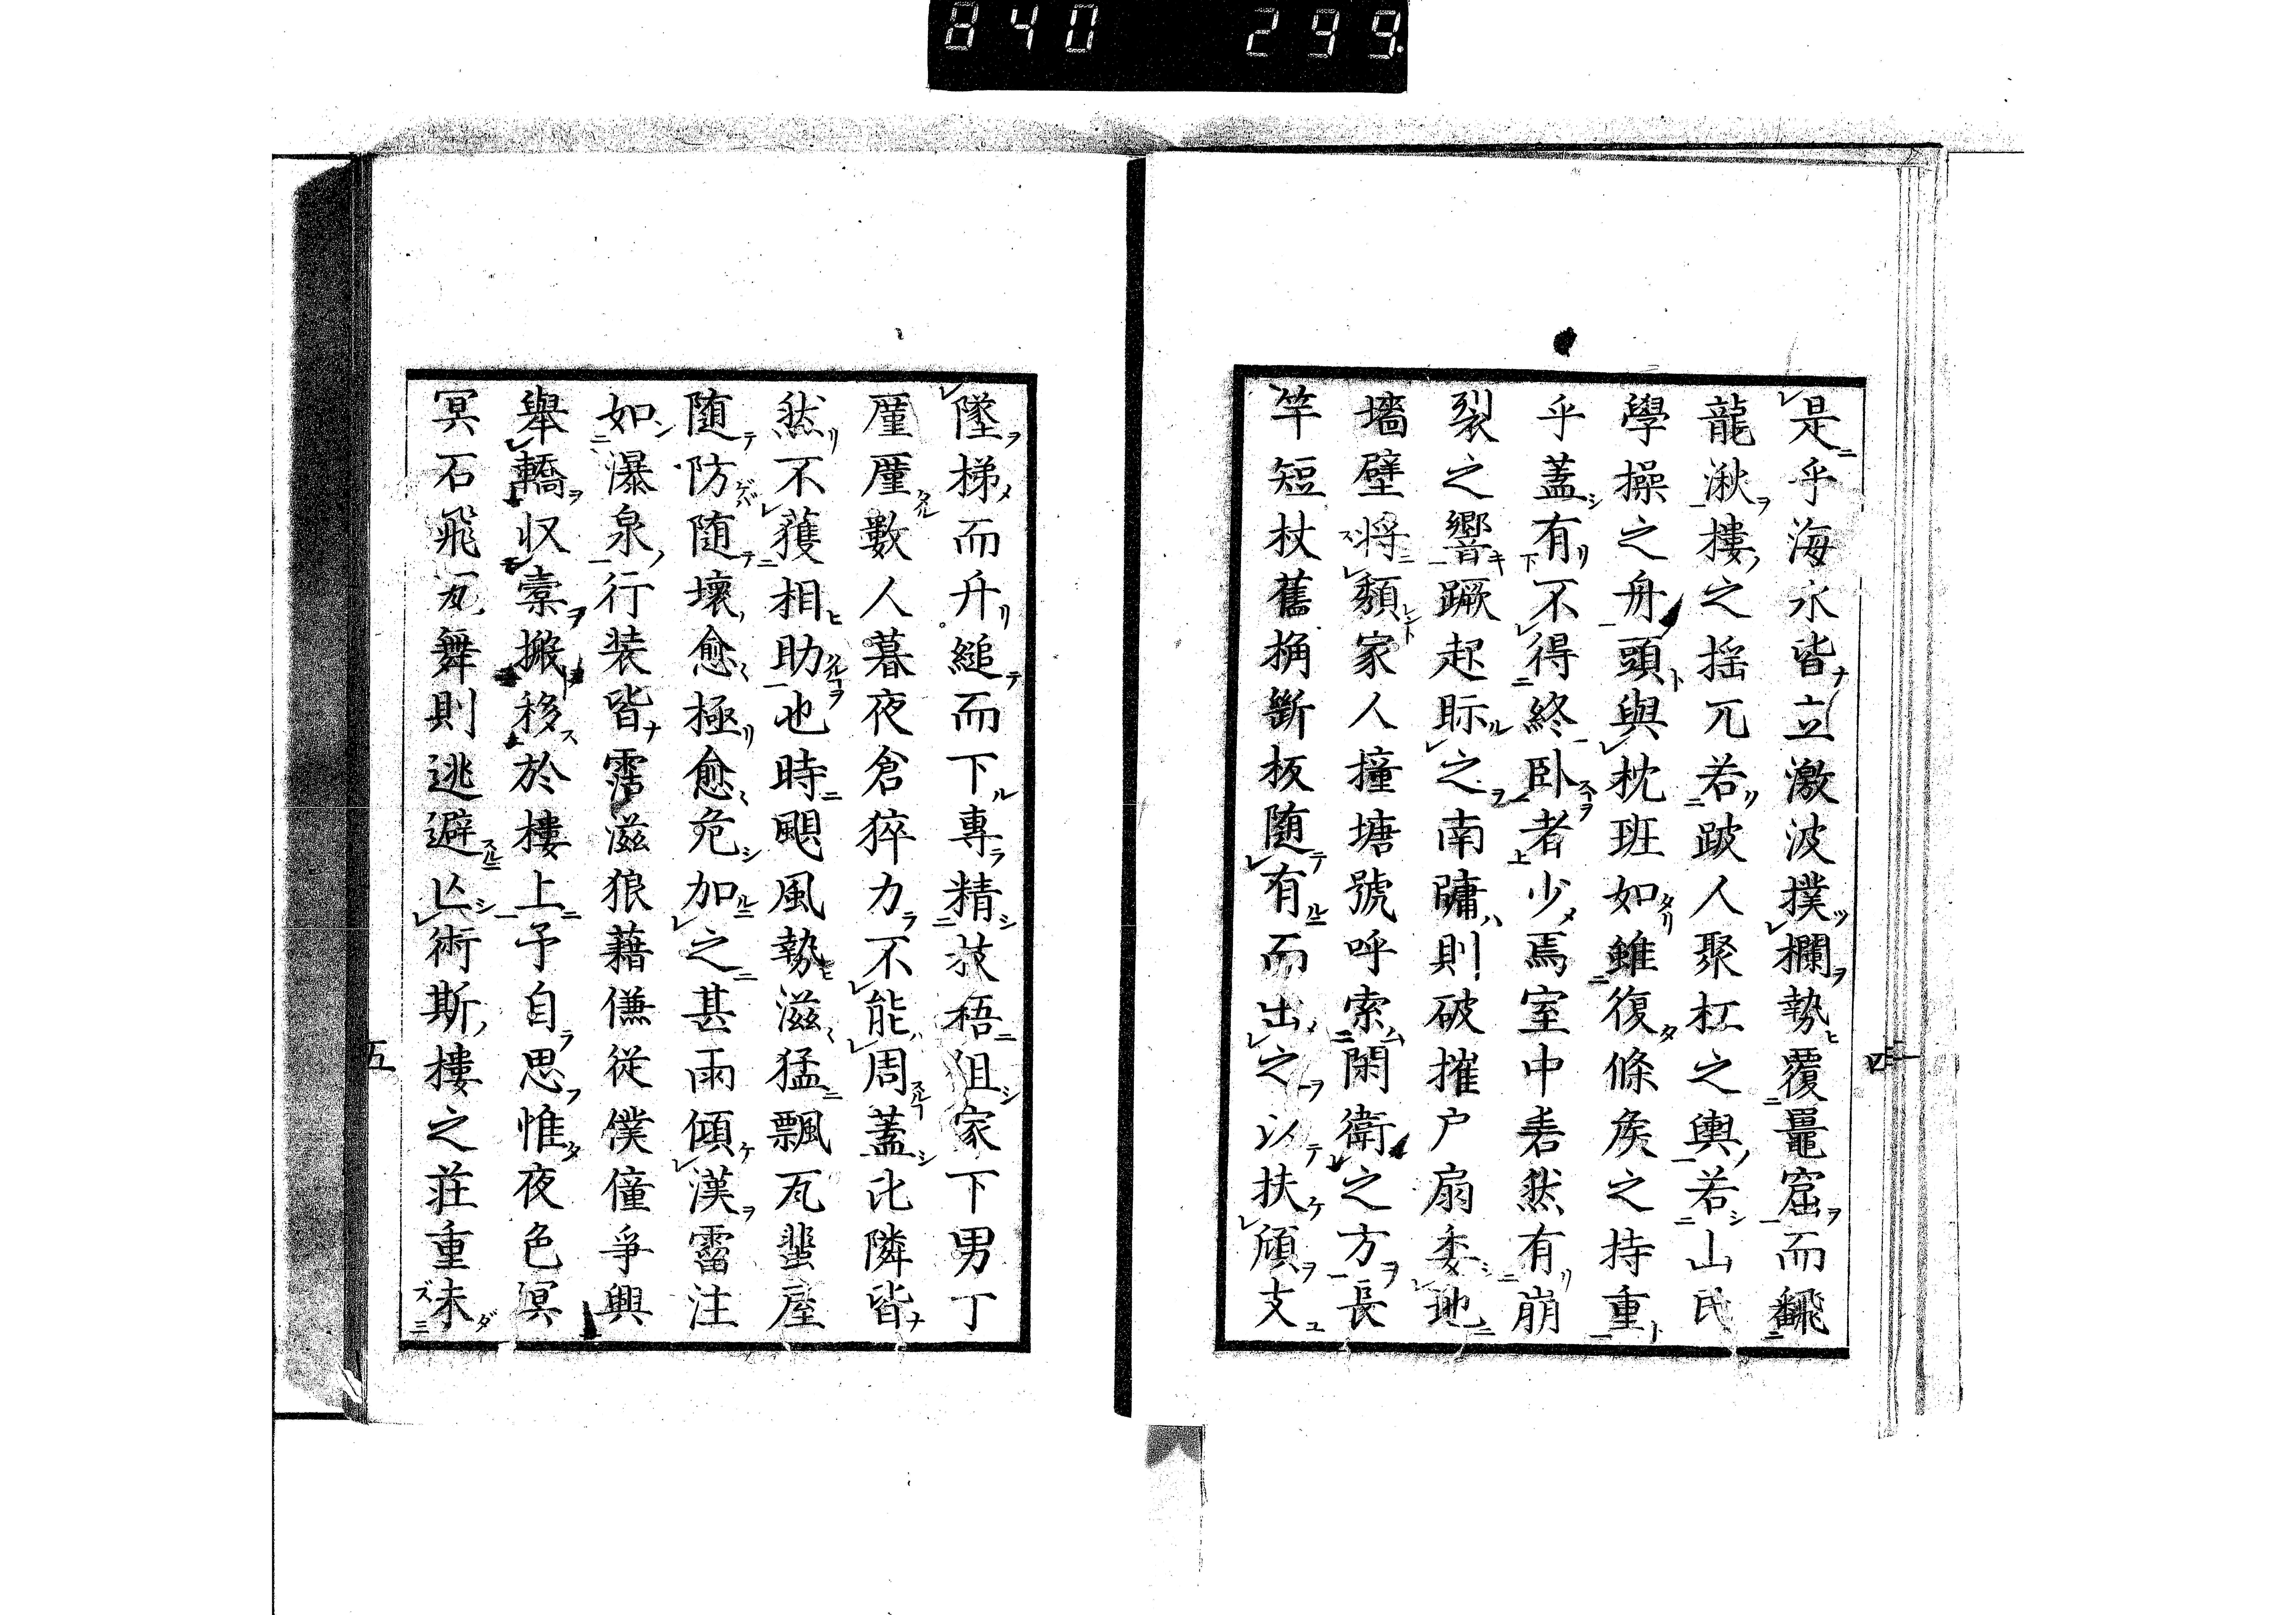 840 299
是乎海水皆立激波撲欄勢覆鼉窟而飜
龍湫樓之揺兀若跛人聚杠之輿若山氓
學操之舟頭與枕班如雖復條矦之持重
乎蓋有不得終卧者少焉室中砉然有崩
裂之響蹶起眎之南牗則破摧户扇委地
墻壁将頽家人撞搪號呼索閑衛之方長
竿短杖舊桷斷板随有而出之以扶傾支
四
墜梯而升縋而下專精救梧阻家下男丁
厪厪數人暮夜倉猝力不能周蓋比隣皆
然不獲相助也時颶風勢滋猛飄瓦蜚屋
随防随壞愈極愈危加之甚雨傾漢霤注
如瀑泉行装皆霑滋狼藉傔從僕僮爭興
舉轎収橐搬移於樓上予自思惟夜色冥
冥石飛瓦舞則逃避亾術斯樓之莊重未
五